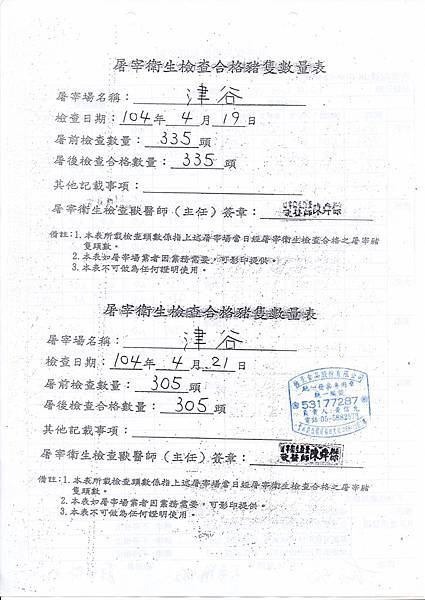 屠宰衛生檢查合格豬隻數量表
屠宰場名稱：津谷
檢查日期：104年4月19日
屠前檢查數量：335頭
屠後檢查合格數量：335頭
其他記載事項：
屠宰衛生檢查獸醫師（主任）簽章：
備註：1.本表所載檢查頭數係指上述屠宰場當日經屠宰衛生檢查合格之屠宰豬
隻頭數。
2.本表如屠宰場業者因業務需要，可影印提供。
3.本表不可做為任何證明使用。
屠宰衛生檢查合格豬隻數量表
屠宰場名稱：津谷
檢查日期：104年4月21日
屠前檢查數量：305頭
屠後檢查合格數量：305頭
食品股份有限公司
統一發票專用章
統一編號
53177287
其他記載事項：
屠宰衛生檢查獸醫師（主任）簽章：
備註：1.本表所載檢查頭數係指上述屠宰場當日經屠宰衛生檢查合格之屠宰豬
隻頭數。
2.本表如屠宰場業者因業務需要，可影印提供。
3.本表不可做為任何證明使用。